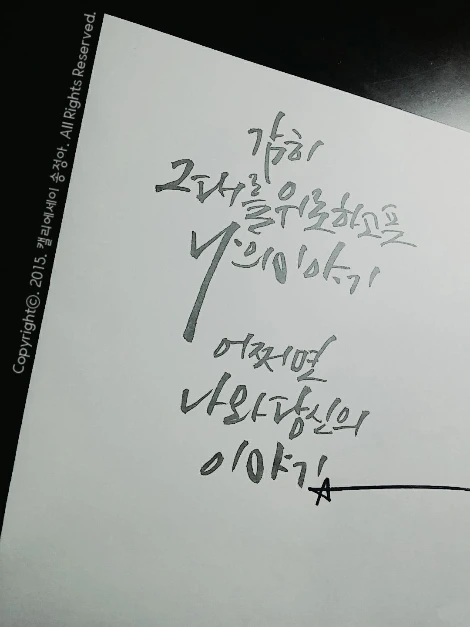 감히
위로하고픈
나의 이야기
어쩌면
나와 당신의
이야기
Copyrightⓒ. 2015. 캘리에세이 송정아. All Rights Reserved.